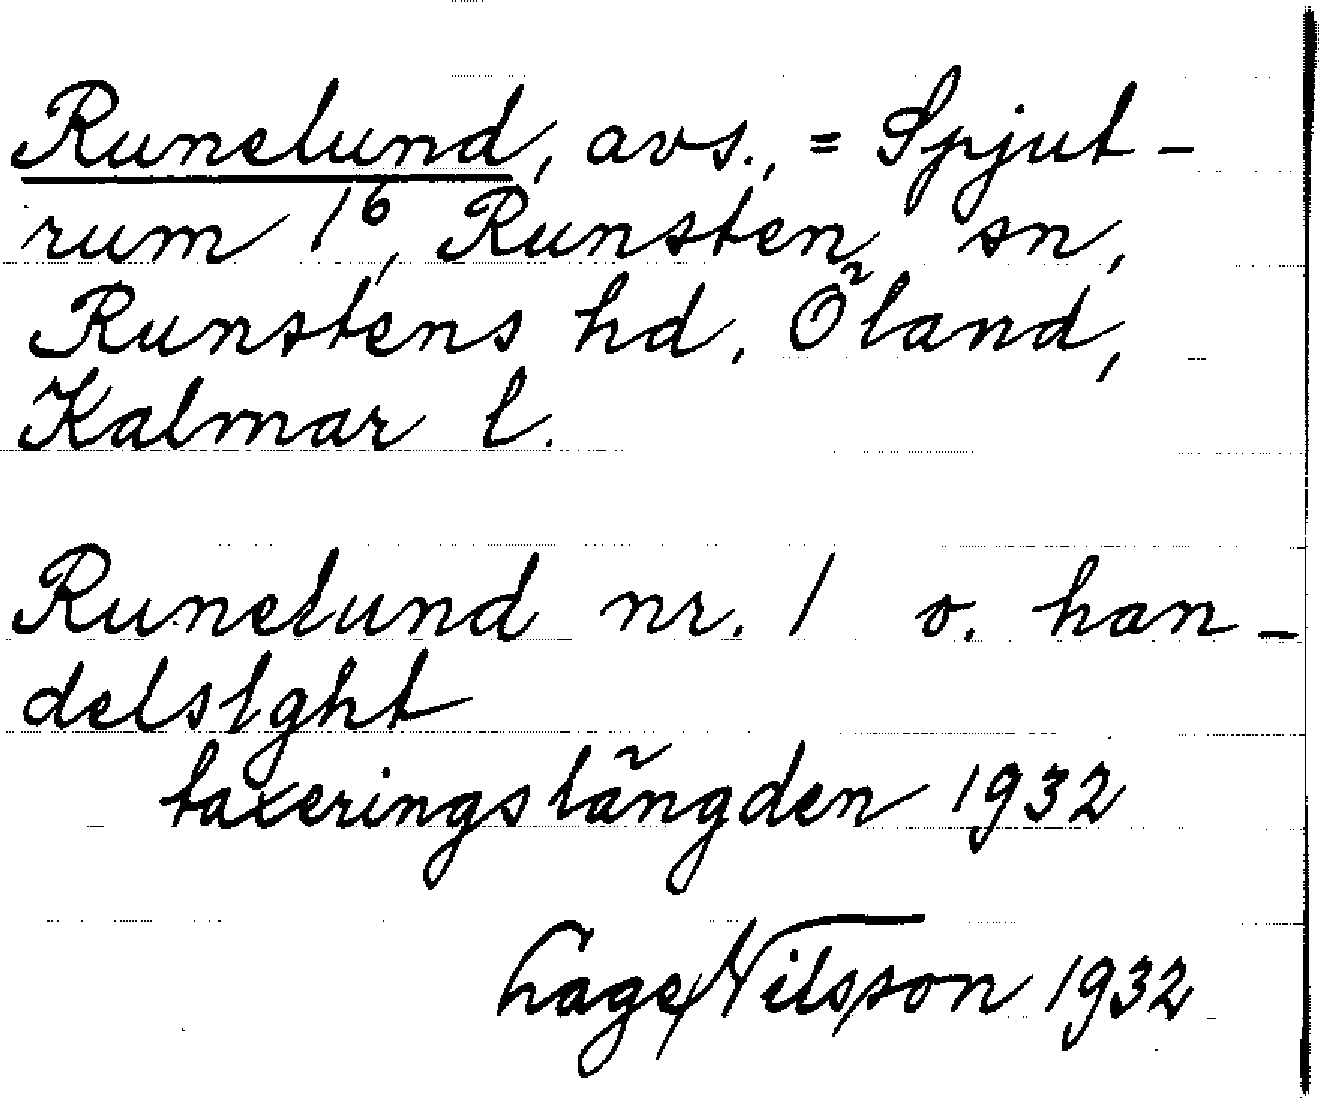 Runelund, avs., = Spjut-
rum 1⁶, Runsten sn,
Runstens hd, Öland,
Kalmar l.
Runelund nr. 1 o. han-
delslght
taxeringslängden 1932
Lage Nilsson 1932